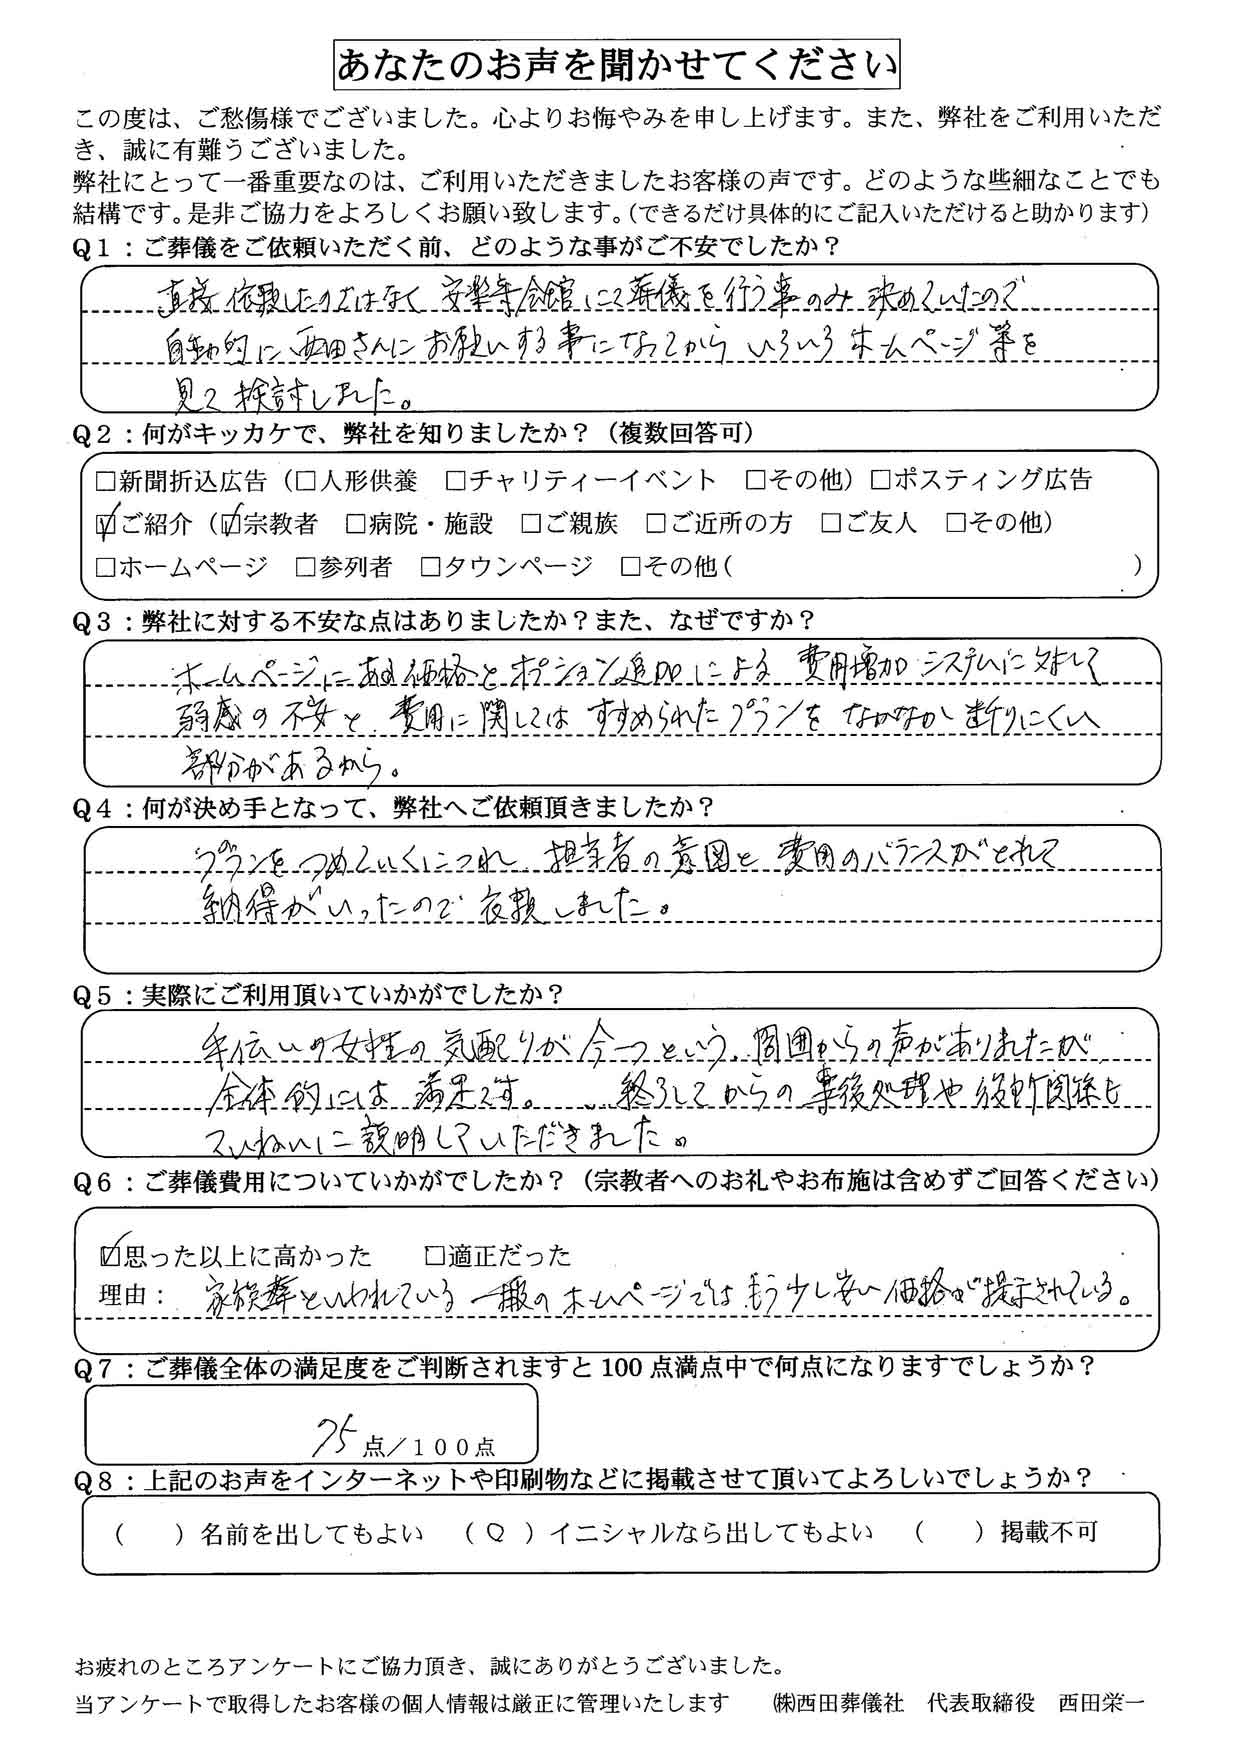 あなたのお声を聞かせてください
この度は、ご愁傷様でございました。心よりお悔やみを申し上げます。また、弊社をご利用いただ
き、誠に有難うございました。
弊社にとって一番重要なのは、ご利用いただきましたお客様の声です。どのような些細なことでも
結構です。是非ご協力をよろしくお願い致します。（できるだけ具体的にご記入いただけると助かります）
Q１：ご葬儀をご依頼いただく前、どのような事がご不安でしたか？
直接依頼したのではなく安楽寺会館にて葬儀を行う事のみ決めていたので
自動的に西田さんにお願いする事になってからいろいろホームページ等を
見て検討しました。
Q２：何がキッカケで、弊社を知りましたか？（複数回答可）
□新聞折込広告（□人形供養　□チャリティーイベント　□その他）□ポスティング広告
☑ご紹介（☑宗教者　□病院・施設　□ご親族　□ご近所の方　□ご友人　□その他）
□ホームページ　□参列者　□タウンページ　□その他（　　　）
Q３：弊社に対する不安な点はありましたか？また、なぜですか？
ホームページにある価格とオプション追加による費用増加システムに対して
弱感の不安と、費用に関しては すすめられたプランを なかなか断りにくい
部分があるから。
Q４：何が決め手となって、弊社へご依頼頂きましたか？
プランをつめていくにつれ、担当者の意図と費用のバランスがとれて
納得がいったので依頼しました。
Q５：実際にご利用頂いていかがでしたか？
手伝いの女性の気配りが今一つという、周囲からの声がありましたが
全体的には満足です。終了してからの事後処理や役所関係も
ていねいに説明していただきました。
Q６：ご葬儀費用についていかがでしたか？（宗教者へのお礼やお布施は含めずご回答ください）
☑思った以上に高かった　□適正だった
理由：家族葬といわれている一般のホームページではもう少し安い価格が提示されている。
Q７：ご葬儀全体の満足度をご判断されますと 100 点満点中で何点になりますでしょうか？
75点／１００点
Q８：上記のお声をインターネットや印刷物などに掲載させて頂いてよろしいでしょうか？
（　）名前を出してもよい　（○）イニシャルなら出してもよい　（　）掲載不可
お疲れのところアンケートにご協力頂き、誠にありがとうございました。
当アンケートで取得したお客様の個人情報は厳正に管理いたします　㈱西田葬儀社　代表取締役　西田栄一